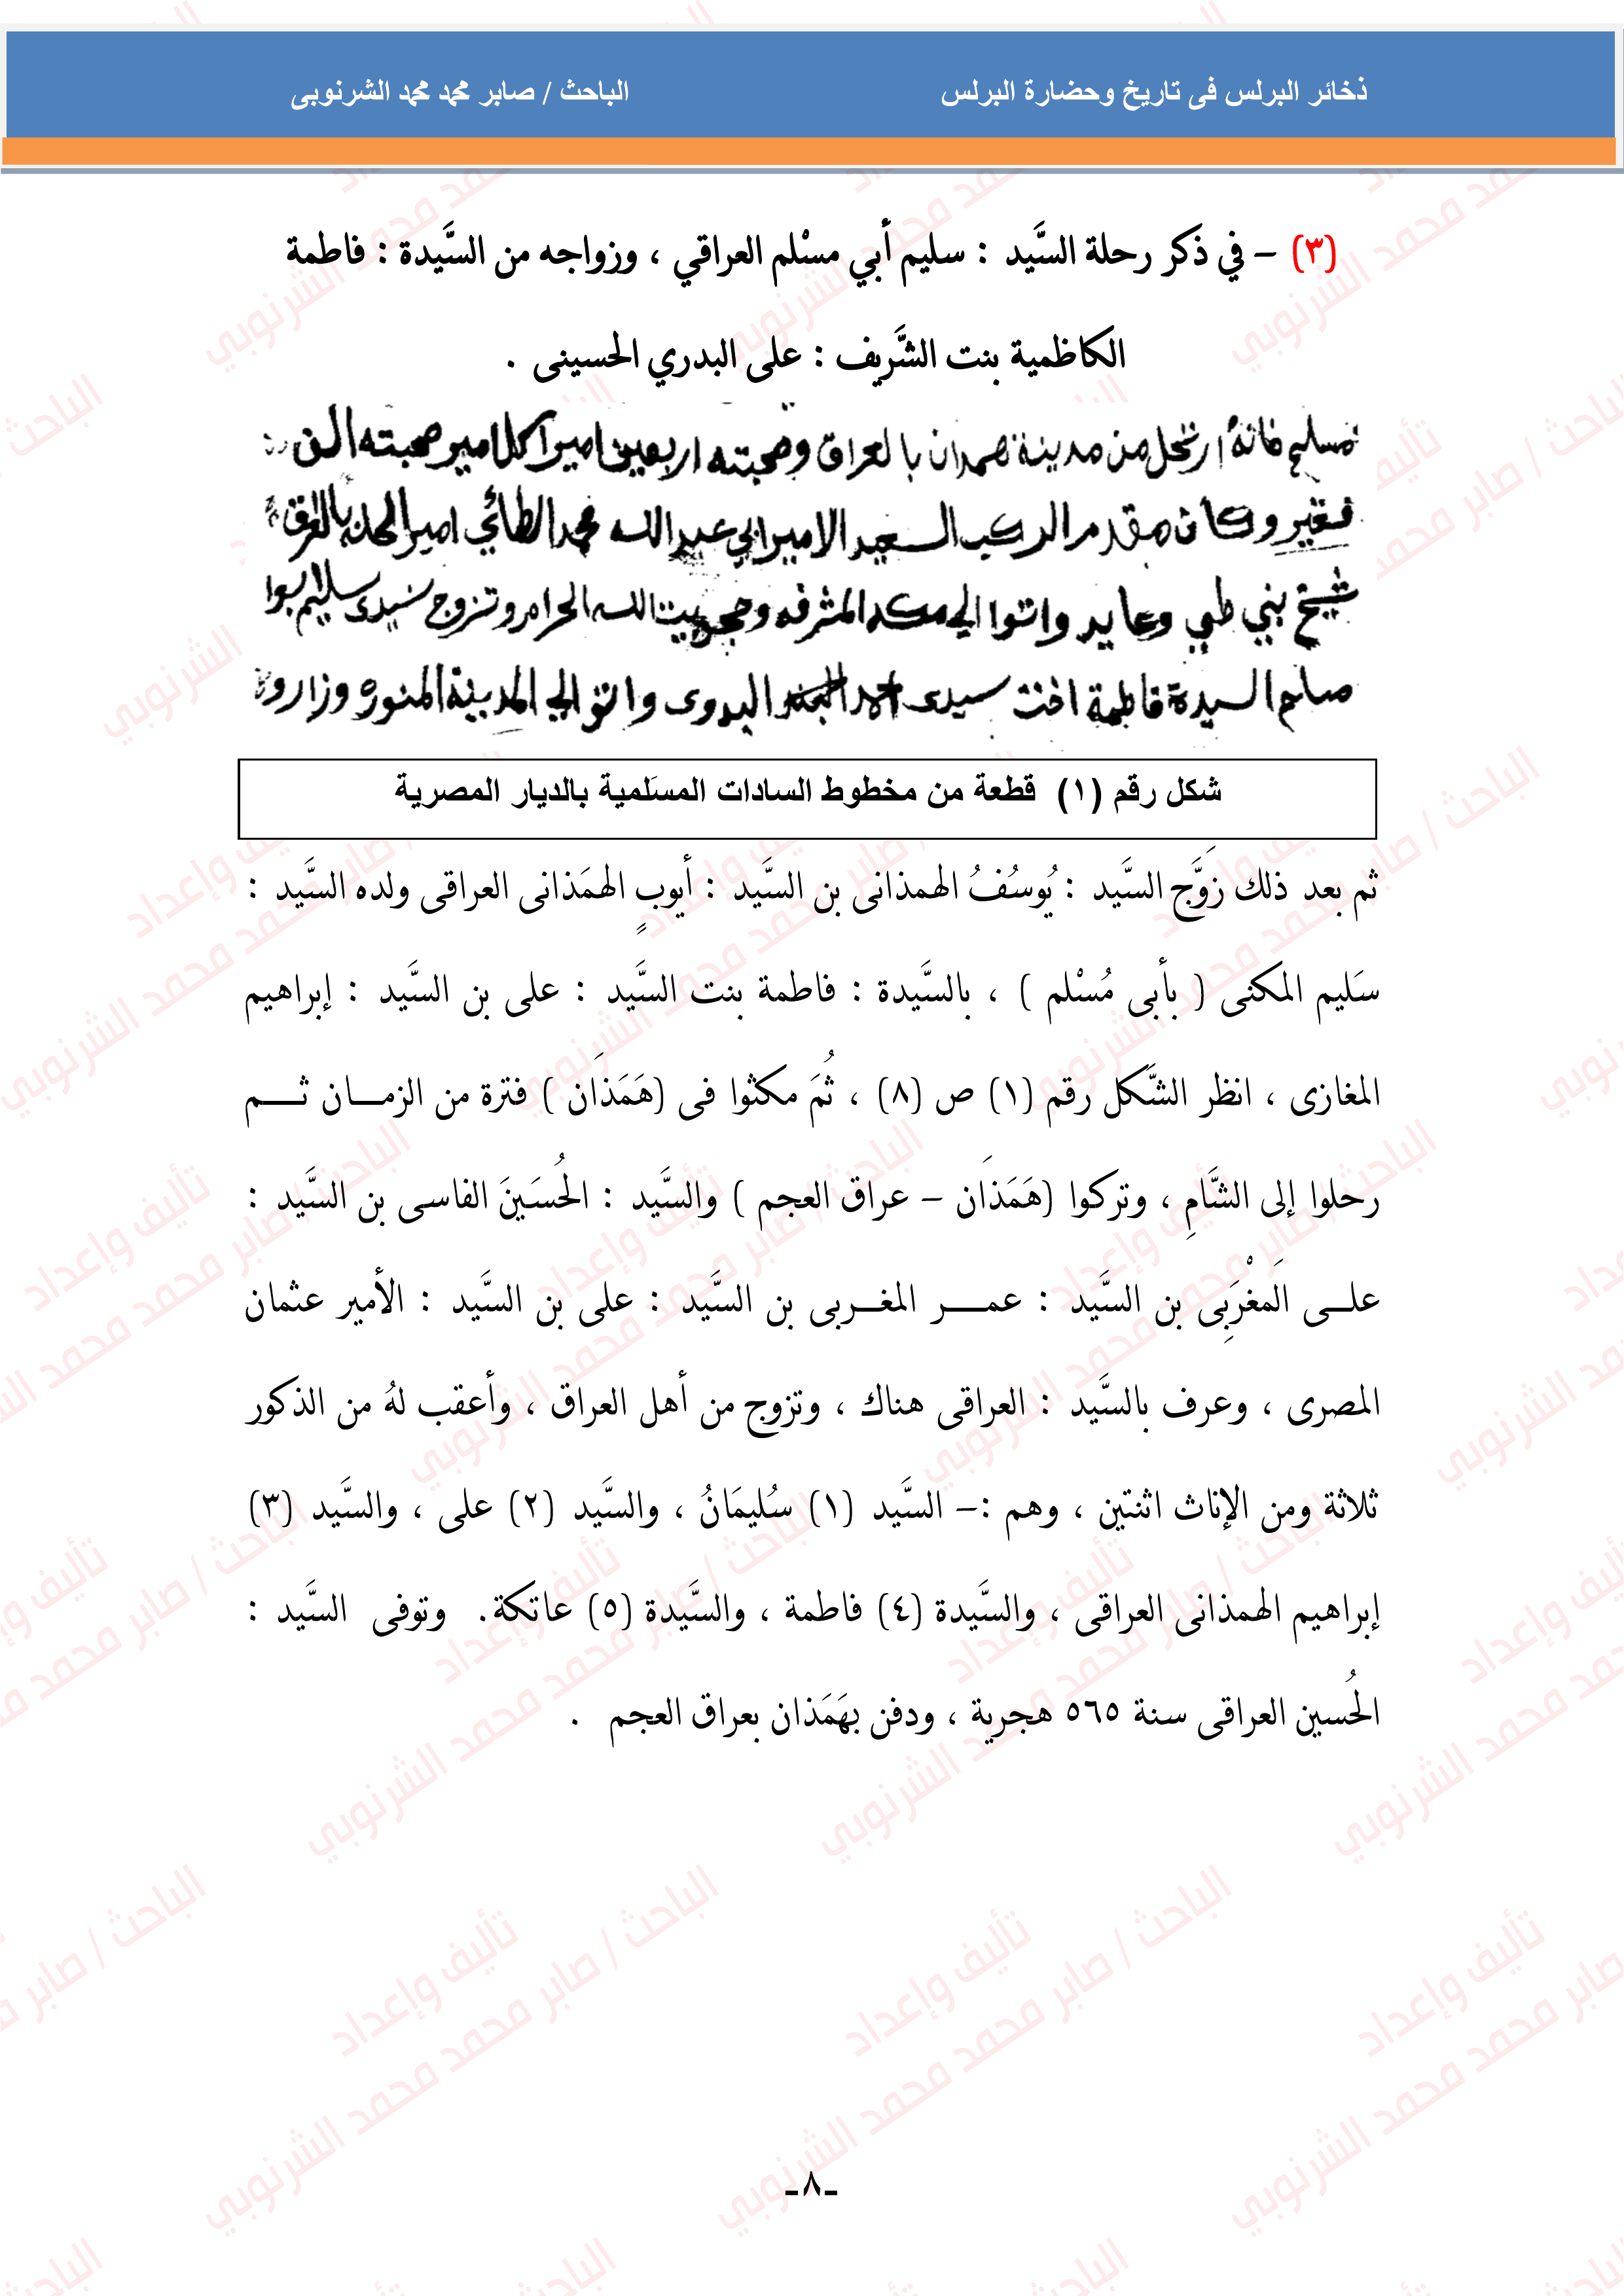 ذخائر البرلس فى تاريخ وحضارة البرلس
الباحث / صابر محمد محمد الشرنوبى
(٣) – في ذكر رحلة السَّيد : سليم أبي مسْلم العراقي ، وزواجه من السَّيدة : فاطمة
الكاظمية بنت الشَّريف : على البدري الحسينى .
مسلم فانه ارتحل من مدينة همدان بالعراق وصحبته اربعين اميرا كل امير صحبته الف
فقير وكان مقدم الركب السعيد الامير ابي عبد الله محمد الطائي امير الحله بالعراق
شيخ بني طي وعايد واتوا الي مكه المشرفه وحجو بيت الله الحرام وتزوج سيدى سليم ابوا
مسلم السيدة فاطمة اخت سيدى احمد البدوى واتو الي المدينة المنوره وزارو
شكل رقم (١) قطعة من مخطوط السادات المسَلمية بالديار المصرية
ثم بعد ذلك زَوَّج السَّيد : يُوسُفُ الهمذانى بن السَّيد : أيوبٍ الهمَذانى العراقى ولده السَّيد :
سَليم المكنى ( بأبى مُسْلم ) ، بالسَّيدة : فاطمة بنت السَّيد : على بن السَّيد : إبراهيم
المغازى ، انظر الشَّكل رقم (١) ص (٨) ، ثُمَ مكثوا فى (هَمَذَان ) فترة من الزمـــان ثــــم
رحلوا إلى الشَّامِ ، وتركوا (هَمَذَان – عراق العجم ) والسَّيد : الحُسَينَ الفاسى بن السَّيد :
علـــى الَمغْرَبِى بن السَّيد : عمــــر المغـــربى بن السَّيد : على بن السَّيد : الأمير عثمان
المصرى ، وعرف بالسَّيد : العراقى هناك ، وتزوج من أهل العراق ، وأعقب لهُ من الذكور
ثلاثة ومن الإناث اثنتين ، وهم :– السَّيد (١) سُليمَانُ ، والسَّيد (٢) على ، والسَّيد (٣)
إبراهيم الهمذانى العراقى ، والسَّيدة (٤) فاطمة ، والسَّيدة (٥) عاتكة. وتوفى السَّيد :
الحُسين العراقى سنة ٥٦٥ هجرية ، ودفن بهَمَذان بعراق العجم .
-٨-
تأليف وإعداد
الباحث / صابر محمد محمد الشرنوبي